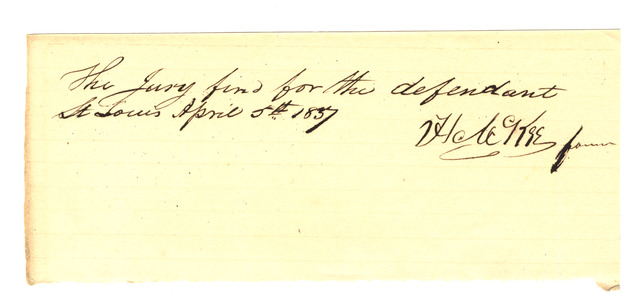 The Jury find for the defendant
St Louis April 5th 1837
McKee